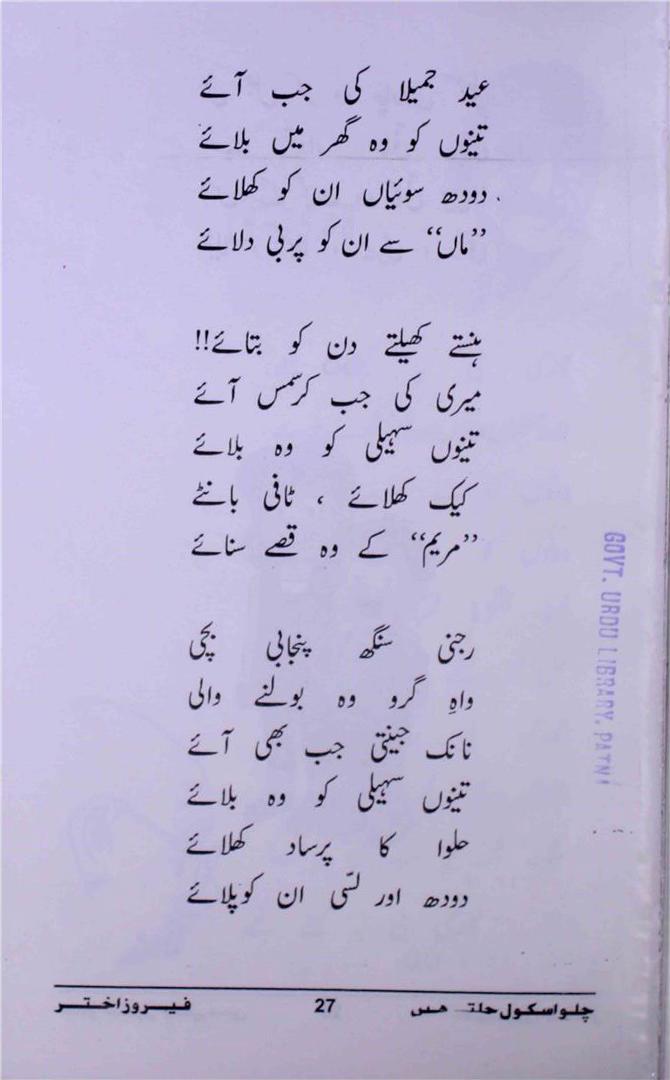 عید جمیلا کی جب آئے
تینوں کو وہ گھر میں بلائے
دودھ سوئیاں ان کو کھلائے
”ماں“ سے ان کو پربی دلائے
ہنستے کھیلتے دن کو بتائے!!
میری کی جب کرسمس آئے
تینوں سہیلی کو وہ بلائے
کیک کھلائے ، ٹافی بانٹے
”مریم“ کے وہ قصے سنائے
رجنی سنگھ پنجابی بچی
واہِ گرو وہ بولنے والی
نانک جینتی جب بھی آئے
تینوں سہیلی کو وہ بلائے
حلوا کا پرساد کھلائے
دودھ اور لسّی ان کو پلائے
چلو اسکول چلتے ہیں 27 فیروز اختر
GOVT. URDU LIBRARY, PATN